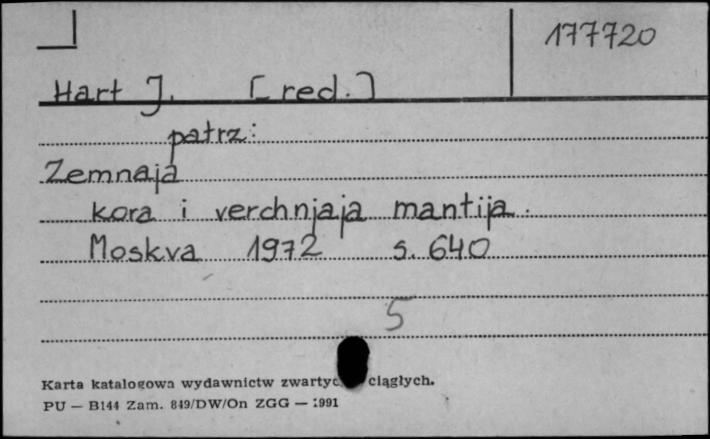 177720
Hart J. [red.]
patrz:
Zemnaja
kora i verchnjaja mantija.
Moskva 1972 s. 640
5
Karta katalogowa wydawnictw ciągłych.
PU — B144 Zam. 849/DW/On ZGG — 1991